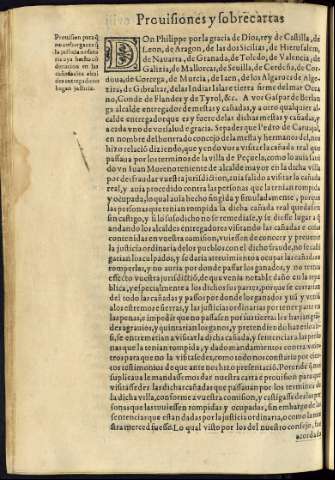 Prouisiones y sobrecartas
Prouision para q̃
no embargante q̃
la justicia ordina-
ria aya hecho cõ
denacion en las
cañadas los alcal
des entregadores
hagan justicia.
DOn Philippe por la gracia de Dios, rey de Castilla, de
Leon, de Aragon, de las dos Sicilias, de Hierusalem,
de Nauarra, de Granada, de Toledo, de Valencia, de
Galizia, de Mallorcas, de Seuilla, de Cerdeña, de Cor-
doua, de Corcega, de Murcia, de Iaen, de los Algarues de Alge-
zira, de Gibraltar, de las Indias Islas e tierra firme del mar Ocea
no, Conde de Flandes y de Tyrol, &c. A vos Gaspar de
alcalde entregador de mestas y cañadas, y a otro qualquier al-
calde entregador que es o fuere de las dichas mestas y cañadas, y
a cada vno de vos salud e gracia. Sepades que Pedro de
en nombre del honrado concejo de la mesta y hermano del, nos
hizo relacion diziendo, que yendo vos a visitar la cañada real que
passaua por los terminos de la villa de Peçuela, como lo auia sido
do vn Iuan Moreno teniente de alcalde mayor en la dicha villa
por os defraudar de vuestra jurisdicion, auia salido a visitar la cañada
real, y auia procedido contra las personas que la tenian rompida
y ocupada, lo qual auia hecho fingida y simuladamente, porque
las personas que tenian rompida la dicha cañada real quedassen
sin castigo, y si lo susodicho no se remediasse, y se diesse lugar a q̃
andando los alcaldes entregadores visitando las cañadas e cosas
contenidas en vuestra comission, viniessen de conocer y preuenir
la justicia ordinaria de los pueblos con el dicho fraude, no se casti
garian los culpados, y se daria atreuimiento a ocupar las cañadas e
romperlas, y no auria por donde passar los ganados, y no ternia
effecto vuestra jurisdicion, de que venia notable daño en la repu
blica, y especialmente a los dichos sus partes, porque se cerrarian
del todo las cañadas y passos por donde los ganados y
a los estremos e sierras, y las justicias ordinarias por tener parte en
las penas, e impedir que no passassen por sus tierras les harian gran-
des agrauios, y quintarian los ganados, y pretendiendo hazerlo as-
si, se entremetian a visitar la dicha cañada, y sentenciar las perso-
nas que la tenian rompida, y dado mandamientos contra vos
otros para que no la visitassedes, como todo nos constaria por cier-
tos testimonios de que ante nos hizo presentacion. Por ende que nos
suplicaua le mandassemos dar nuestra carta e prouision para que
visitassedes las dichas cañadas que passauan por los terminos de
la dicha villa, conforme a vuestra comission, y castigassedes las per
sonas que las tuuiessen rompidas y ocupadas, sin embargo de las
sentencias que estan dadas por la justicia ordinaria, o como la nue
stra merced fuesse. Lo qual visto por los del nuestro consejo, fue
acordado